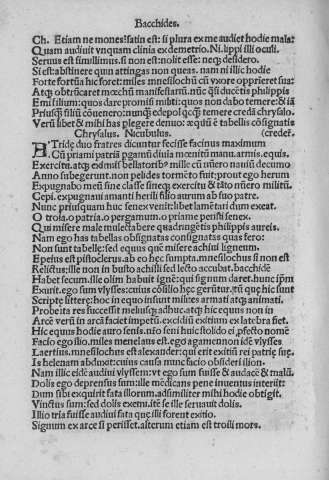 Bacchides.
Ch. Etiam ne mones: satin est: si plura ex me audiet hodie mala:
Quam audiuit vnquam clinia ex demetrio. Ni. lippi illi oculi.
Seruus est simillimus. si non est: nolit esse: neqȝ desidero.
Si est: abstinere quin attingas non queas. nam ni illic hodie
Forte fortũa hic foret: miles mnesilochũ cũ vxore opprieret sua:
Atqȝ obtrũcaret mœchũ manifestariũ. nũc q̃si ducẽtis philippis
Emi filium: quos dare promisi militi: quos non dabo temere: & iã
Priusqȝ filiũ cõuenero: nunqȝ edepol qcqȝ temere credã chrysalo.
Verũ libet & mihi has plegere denuo: æquũ ẽ tabellis cõsignatis
Chrysalus. Nicubulus. (credeř.
ATridę duo fratres dicuntur fecisse facinus maximum
Cũ priami patriã pgamũ diuia mœnitũ manu. armis. equis.
Exercitu. atqȝ eximiis bellatoribꝰ mille cũ nũero nauiũ decimo
Anno subegerunt. non pelides tormẽto fuit: prout ego herum
Expugnabo meũ sine classe sineqȝ exercitu & tãto nũero militũ.
Cepi. expugnaui amanti herili filio aurum ab suo patre.
Nunc priusquam huc senex venit: libet lamẽtari dum exeat.
O troia. o patria. o pergamum. o priame peristi senex.
Qui misere male mulctabere quadringẽtis philippis aureis.
Nam ego has tabellas obsignatas consignatas quas fero:
Non sunt tabellę: sed equus quẽ misere achiui ligneum.
Epeius est pistoclerus. ab eo hęc sumpta. mnesilochus si non est
Relictus: ille non in busto achilli sed lecto accubat. bacchidẽ
Habet secum. ille olim habuit ignẽ: qui signum daret. hunc ipm̃
Exurit. ego sum vlysses: cuius cõsilio hęc gerũtur. tũ quę hic sunt
Scriptę litterę: hoc in equo insunt milites armati atqȝ animati.
Probe ita res successit meiusqȝ adhuc. atqȝ hic equus non in
Arcẽ verũ in arcã faciet impetũ. excidiũ exitium ex latebra fiet.
Hic equus hodie auro senis. nřo seni huic stolido ei pfecto nomẽ
Facio ego ilio. miles menelaus est. ego agamennon idẽ vlysses
Laertius. mnesilochus est alexander: qui erit exitiũ rei patrię suę.
Is helenam abduxit: cuius causa nunc facio obsidieri ilion.
Nam illic eidẽ audiui vlyssem: vt ego sum fuisse & audacẽ & malũ.
Dolis ego deprensus sum: ille mẽdicans pene inuentus interiit:
Dum ibi exquirit fata illorum. adsimiliter mihi hodie obtigit.
Vinctus sum: sed dolis exemi. itẽ se ille seruauit dolis.
Illio tria fuisse audiui fata quę illi forent exitio.
Signum ex arce si perisset. alterum etiam est troili mors.